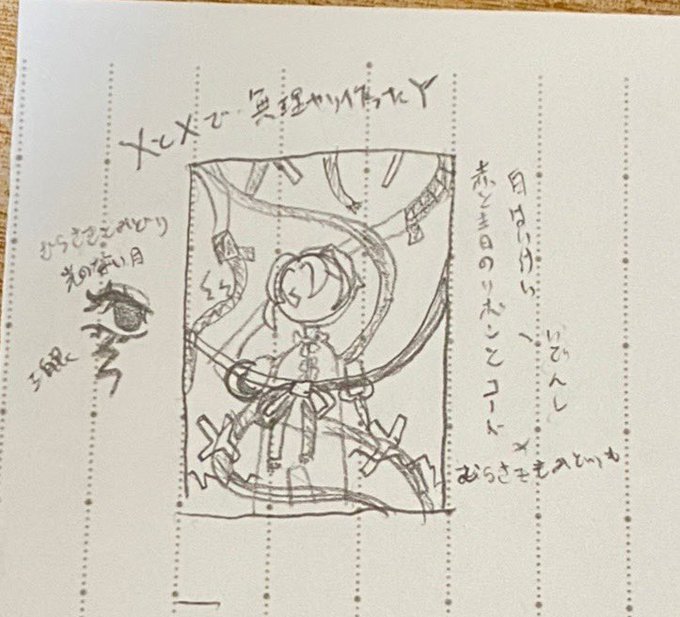 XとXで無理やり作ったY
むらさきとみどり
光のない目
三白眼
白はいけい、
いでんし
赤と青のリボンとコード
むらさきもみどりも